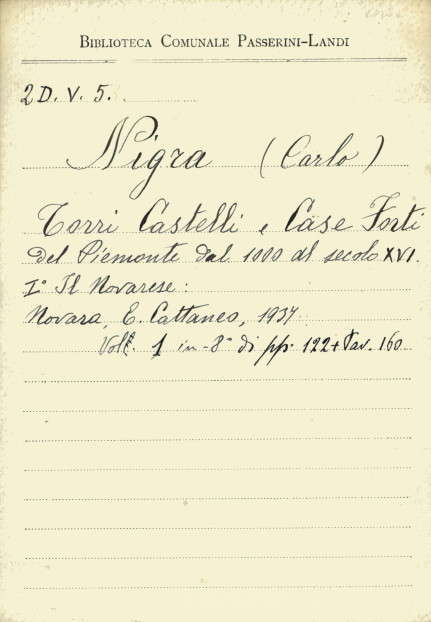 BIBLIOTECA COMUNALE PASSERINI-LANDI
2 D. V. 5.
Nigra (Carlo)
Torri Castelli e Case Forti
del Piemonte dal 1000 al secolo XVI.
I° Il Novarese:
Novara, E. Cattaneo, 1937
Voll. 1 in-8° di pp. 122 + Tav. 160